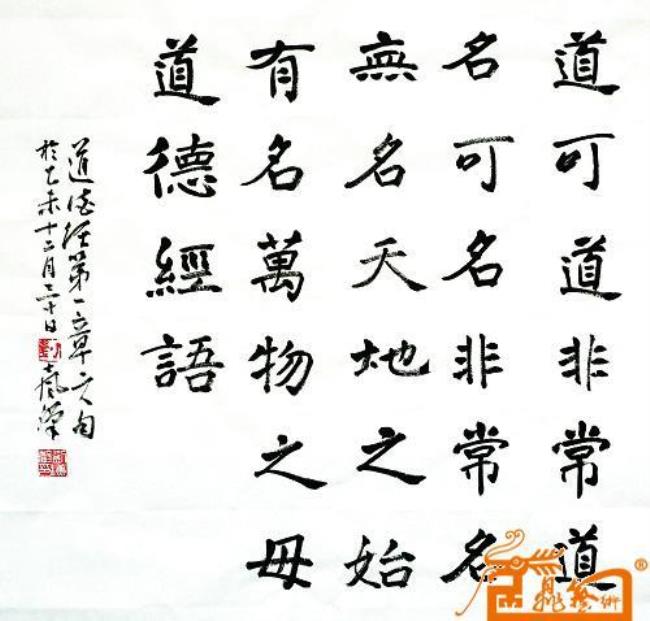 道可道非常道
名可名非常名
無名天地之始
有名萬物之母
道德經語
道德經第一章之句
於乙未十二月三十日